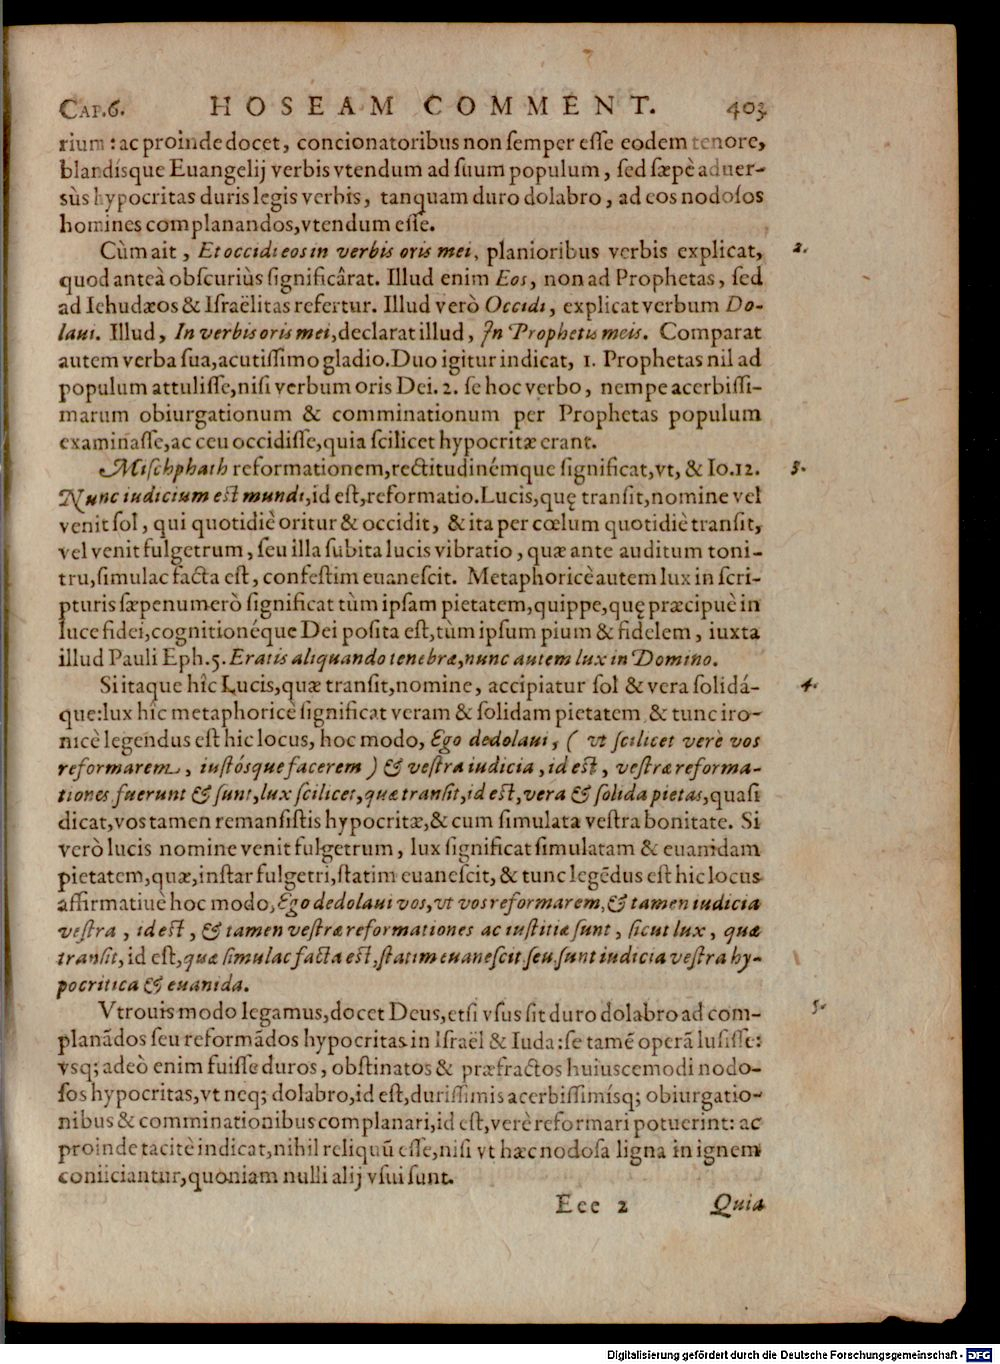 CAP.6. HOSEAM COMMENT. 403
rium: ac proinde docet, concionatoribus non semper esse eodem tenore,
blandísque Euangelij verbis vtendum ad suum populum, sed sæpè aduer-
sùs hypocritas duris legis verbis, tanquam duro dolabro, ad eos nodosos
homines complanandos, vtendum esse.
Cùm ait, Et occidi eos in verbis oris mei, planioribus verbis explicat, 2.
quod anteà obscuriùs significârat. Illud enim Eos, non ad Prophetas, sed
ad Iehudæos & Israëlitas refertur. Illud verò Occidi, explicat verbum Do-
laui. Illud, In verbis oris mei, declarat illud, In Prophetis meis. Comparat
autem verba sua, acutissimo gladio. Duo igitur indicat, 1. Prophetas nil ad
populum attulisse, nisi verbum oris Dei. 2. se hoc verbo, nempe acerbissi-
marum obiurgationum & comminationum per Prophetas populum
examinasse, ac ceu occidisse, quia scilicet hypocritæ erant.
Mischphath reformationem, rectitudinémque significat, vt, & Io.12. 3.
Nunc iudicium est mundi, id est, reformatio. Lucis, quę transit, nomine vel
venit sol, qui quotidiè oritur & occidit, & ita per cœlum quotidiè transit,
vel venit fulgetrum, seu illa subita lucis vibratio, quæ ante auditum toni-
tru, simulac facta est, confestim euanescit. Metaphoricè autem lux in scri-
pturis sæpenumerò significat tùm ipsam pietatem, quippe, quę præcipuè in
luce fidei, cognitionéque Dei posita est, tùm ipsum pium & fidelem, iuxta
illud Pauli Eph.5. Eratis aliquando tenebræ, nunc autem lux in Domino.
Si itaque hîc Lucis, quæ transit, nomine, accipiatur sol & vera solidá- 4.
que: lux hîc metaphoricè significat veram & solidam pietatem & tunc iro-
nicè legendus est hic locus, hoc modo, Ego dedolaui, ( vt scilicet verè vos
reformarem, iustósque facerem ) & vestra iudicia, id est, vestræ reforma-
tiones fuerunt & sunt, lux scilicet, quæ transit, id est, vera & solida pietas, quasi
dicat, vos tamen remansistis hypocritæ, & cum simulata vestra bonitate. Si
verò lucis nomine venit fulgetrum, lux significat simulatam & euanidam
pietatem, quæ, instar fulgetri, statim euanescit, & tunc legẽdus est hic locus
affirmatiuè hoc modo, Ego dedolaui vos, vt vos reformarem, & tamen iudicia
vestra, id est, & tamen vestræ reformationes ac iustitiæ sunt, sicut lux, quæ
transit, id est, quæ simulac facta est, statim euanescit, seu, sunt iudicia vestra hy-
pocritica & euanida.
Vtrouis modo legamus, docet Deus, etsi vsus sit duro dolabro ad com- 5.
planãdos seu reformãdos hypocritas in Israël & Iuda: se tamẽ operã lusisse:
vsq; adeò enim fuisse duros, obstinatos & præfractos huiuscemodi nodo-
sos hypocritas, vt neq; dolabro, id est, durissimis acerbissimísq; obiurgatio-
nibus & comminationibus complanari, id est, verè reformari potuerint: ac
proinde tacitè indicat, nihil reliquũ esse, nisi vt hæc nodosa ligna in ignem
coniiciantur, quoniam nulli alij vsui sunt.
Eee 2 Quia
Digitalisierung gefördert durch die Deutsche Forschungsgemeinschaft - DFG